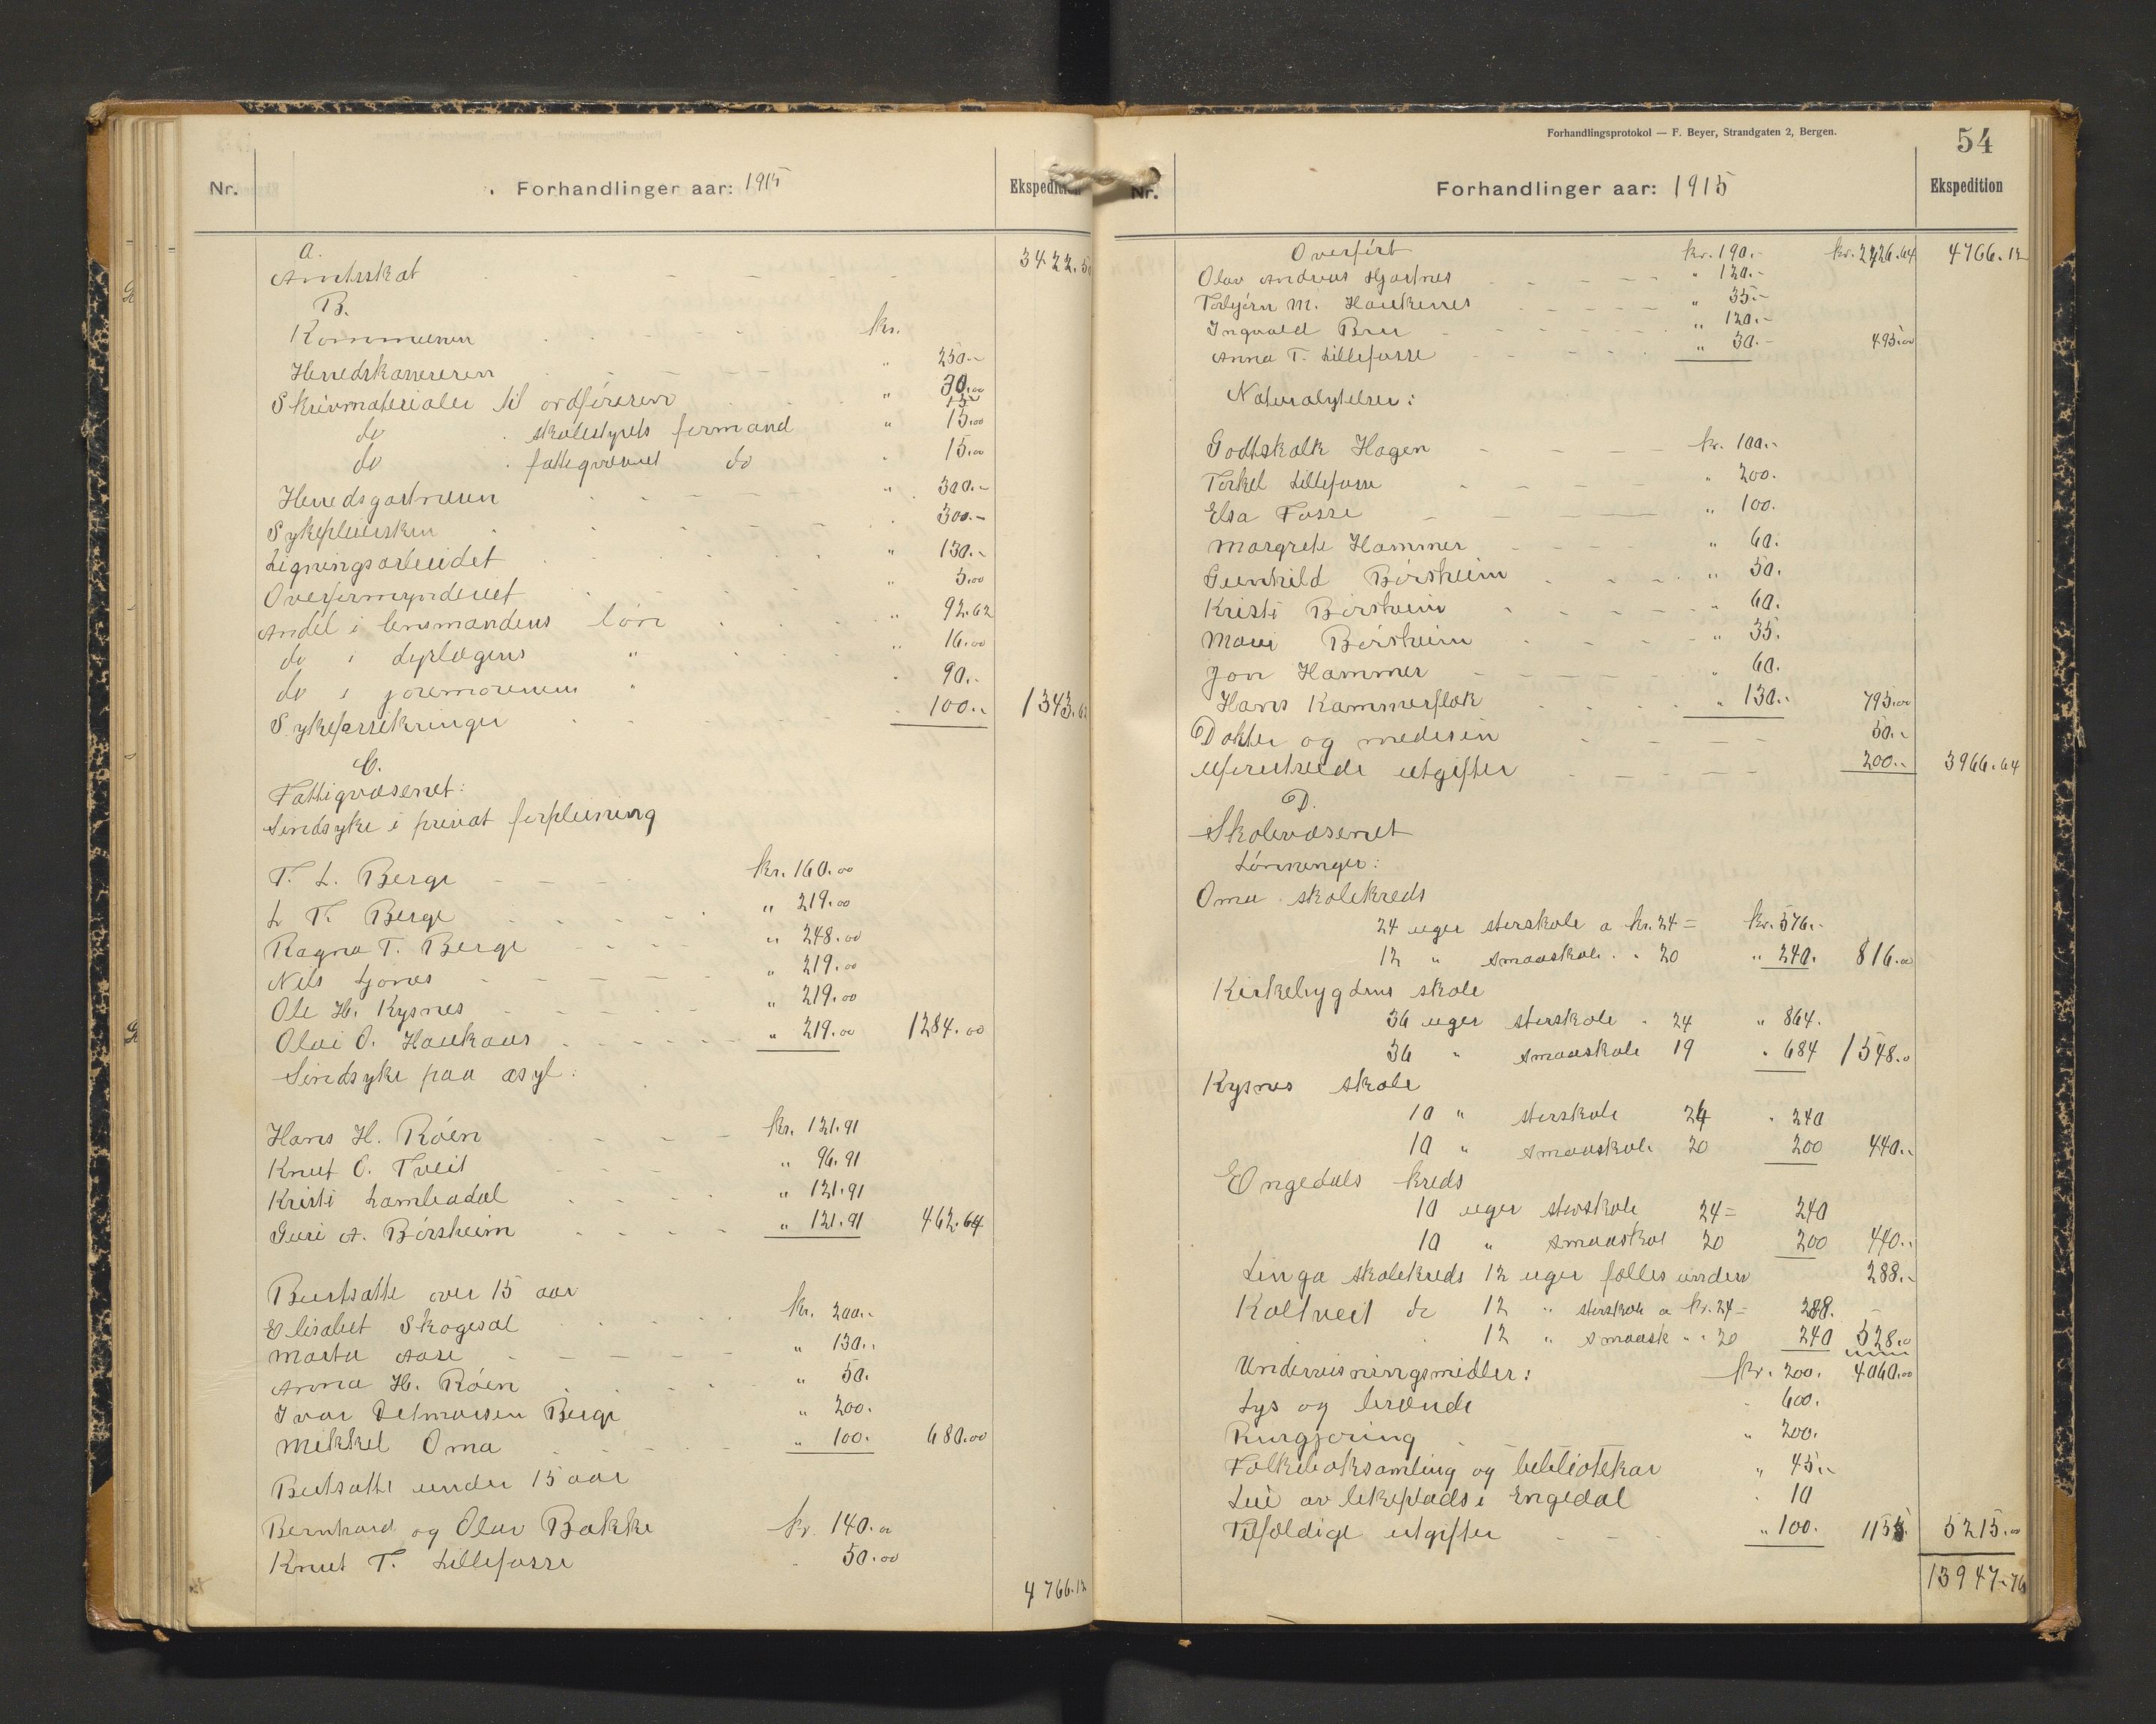 Nr. Forhandlinger aar: 1915 Ekspedition
A.
Amtsskat - - - - - 3422.50
B.
Kommunen kr.
Herredskassereren " 250.-
Skrivmaterialer til ordføreren " 30.00
do skolestyrets formand " 15.00
do fattigvæsenet do " 15.00
Herredsgartneren " 300.-
Sykepleiersken " 300.-
Ligningsarbeidet " 130.-
Overformynderiet " 5.00
Andel i lensmandens løn " 92.62
do i dyrlægens " " 16.00
do i joremorenens " " 90.-
Sykeforsikringer " 100.- 1343.62
C.
Fattigvæsenet:
Sindsyke i privat forpleining
T. L. Berge - - - kr. 160.00
L T. Berge " 219.00
Ragna T. Berge " 248.00
Nils Tjones " 219.00
Ole H. Kysnes " 219.00
Olai O. Haukaas " 219.00 1284.00
Sindsyke paa asyl:
Hans H. Røen kr. 121.91
Knut O. Tveit " 96.91
Kristi Lambadal " 121.91
Guri A. Børsheim " 121.91 462.64
Bortsatte over 15 aar
Elisabet Skogesal kr. 200.-
Marta Aase " 130.-
Anna H. Røen " 50.
Ivar Detmarsen Berge " 200.
Mikkel Oma " 100. 680.00
Bortsatte under 15 aar
Bernhard og Olav Bakke kr. 140.00
Knut T. Lillefosse " 50.00
4766.12
Forhandlingsprotokol — F. Beyer, Strandgaten 2, Bergen.
54
Nr. Forhandlinger aar: 1915 Ekspedition
Overført kr. 190.- kr. 2426.64 4766.12
Olav Andreas Hjartnes " 120.-
Torbjørn M. Haukenes " 35.-
Ingvald Bru " 120.-
Anna T. Lillefosse " 30.- 495.00
Naturalytelser:
Godtskalk Hagen kr. 100.-
Torkel Lillefosse " 200.
Elsa Fosse " 100.
Margrete Hammer " 60.
Gunhild Børsheim " 50.
Kristi Børsheim " 60.
Mari Børsheim " 35.
Jon Hammer " 60.
Hans Kammerflok " 130.- 795.00
Dokter og medesin 50.-
Uforutseede utgifter 200.- 3966.64
D.
Skolevæsenet
Lønninger:
Oma skolekreds
24 uger storskole a kr. 24 = kr. 576.-
12 " smaaskole " 20 " 240. 816.00
Kirkebygdens skole
36 uger storskole " 24 " 864.
36 " smaaskole 19 " 684 1548.00
Kysnes skole
10 " storskole 24 " 240
10 " smaaskole 20 200 440.-
Engedals kreds
10 uger storskole 24 = 240
10 " smaaskol 20 200 440.-
Linga skolekreds 12 uger fælles underv 288.-
Koltveit do 12 " storskole a kr. 24 = 288.
12 " smaask " " 20 240 528.00
Undervisningsmidler: kr. 200. 4060.00
Lys og brænde " 600.
Rengjøring " 200.
Folkeboksamling og bibliotekar " 45.-
Leie av lekeplads i Engedal " 10
Tilfældige utgifter " 100. 1155. 5215.00
13947.76